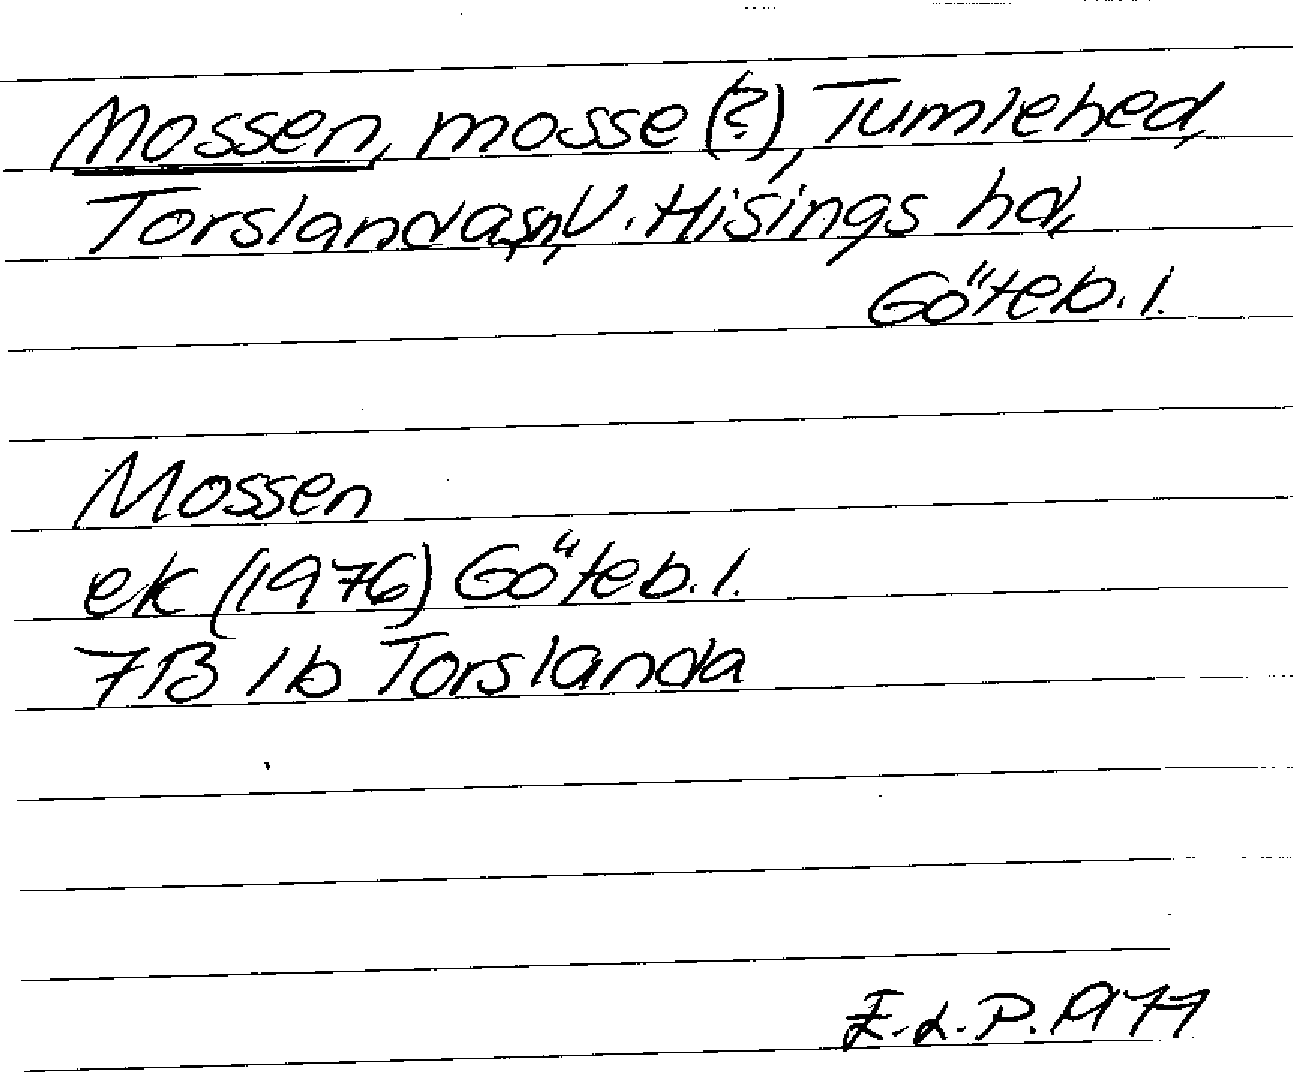 Mossen, mosse (?), Tumlehed,
Torslanda sn, V. Hisings hd,
Göteb. l.
Mossen
ek (1976) Göteb. l.
7B 1b Torslanda
E.L.P. 1977